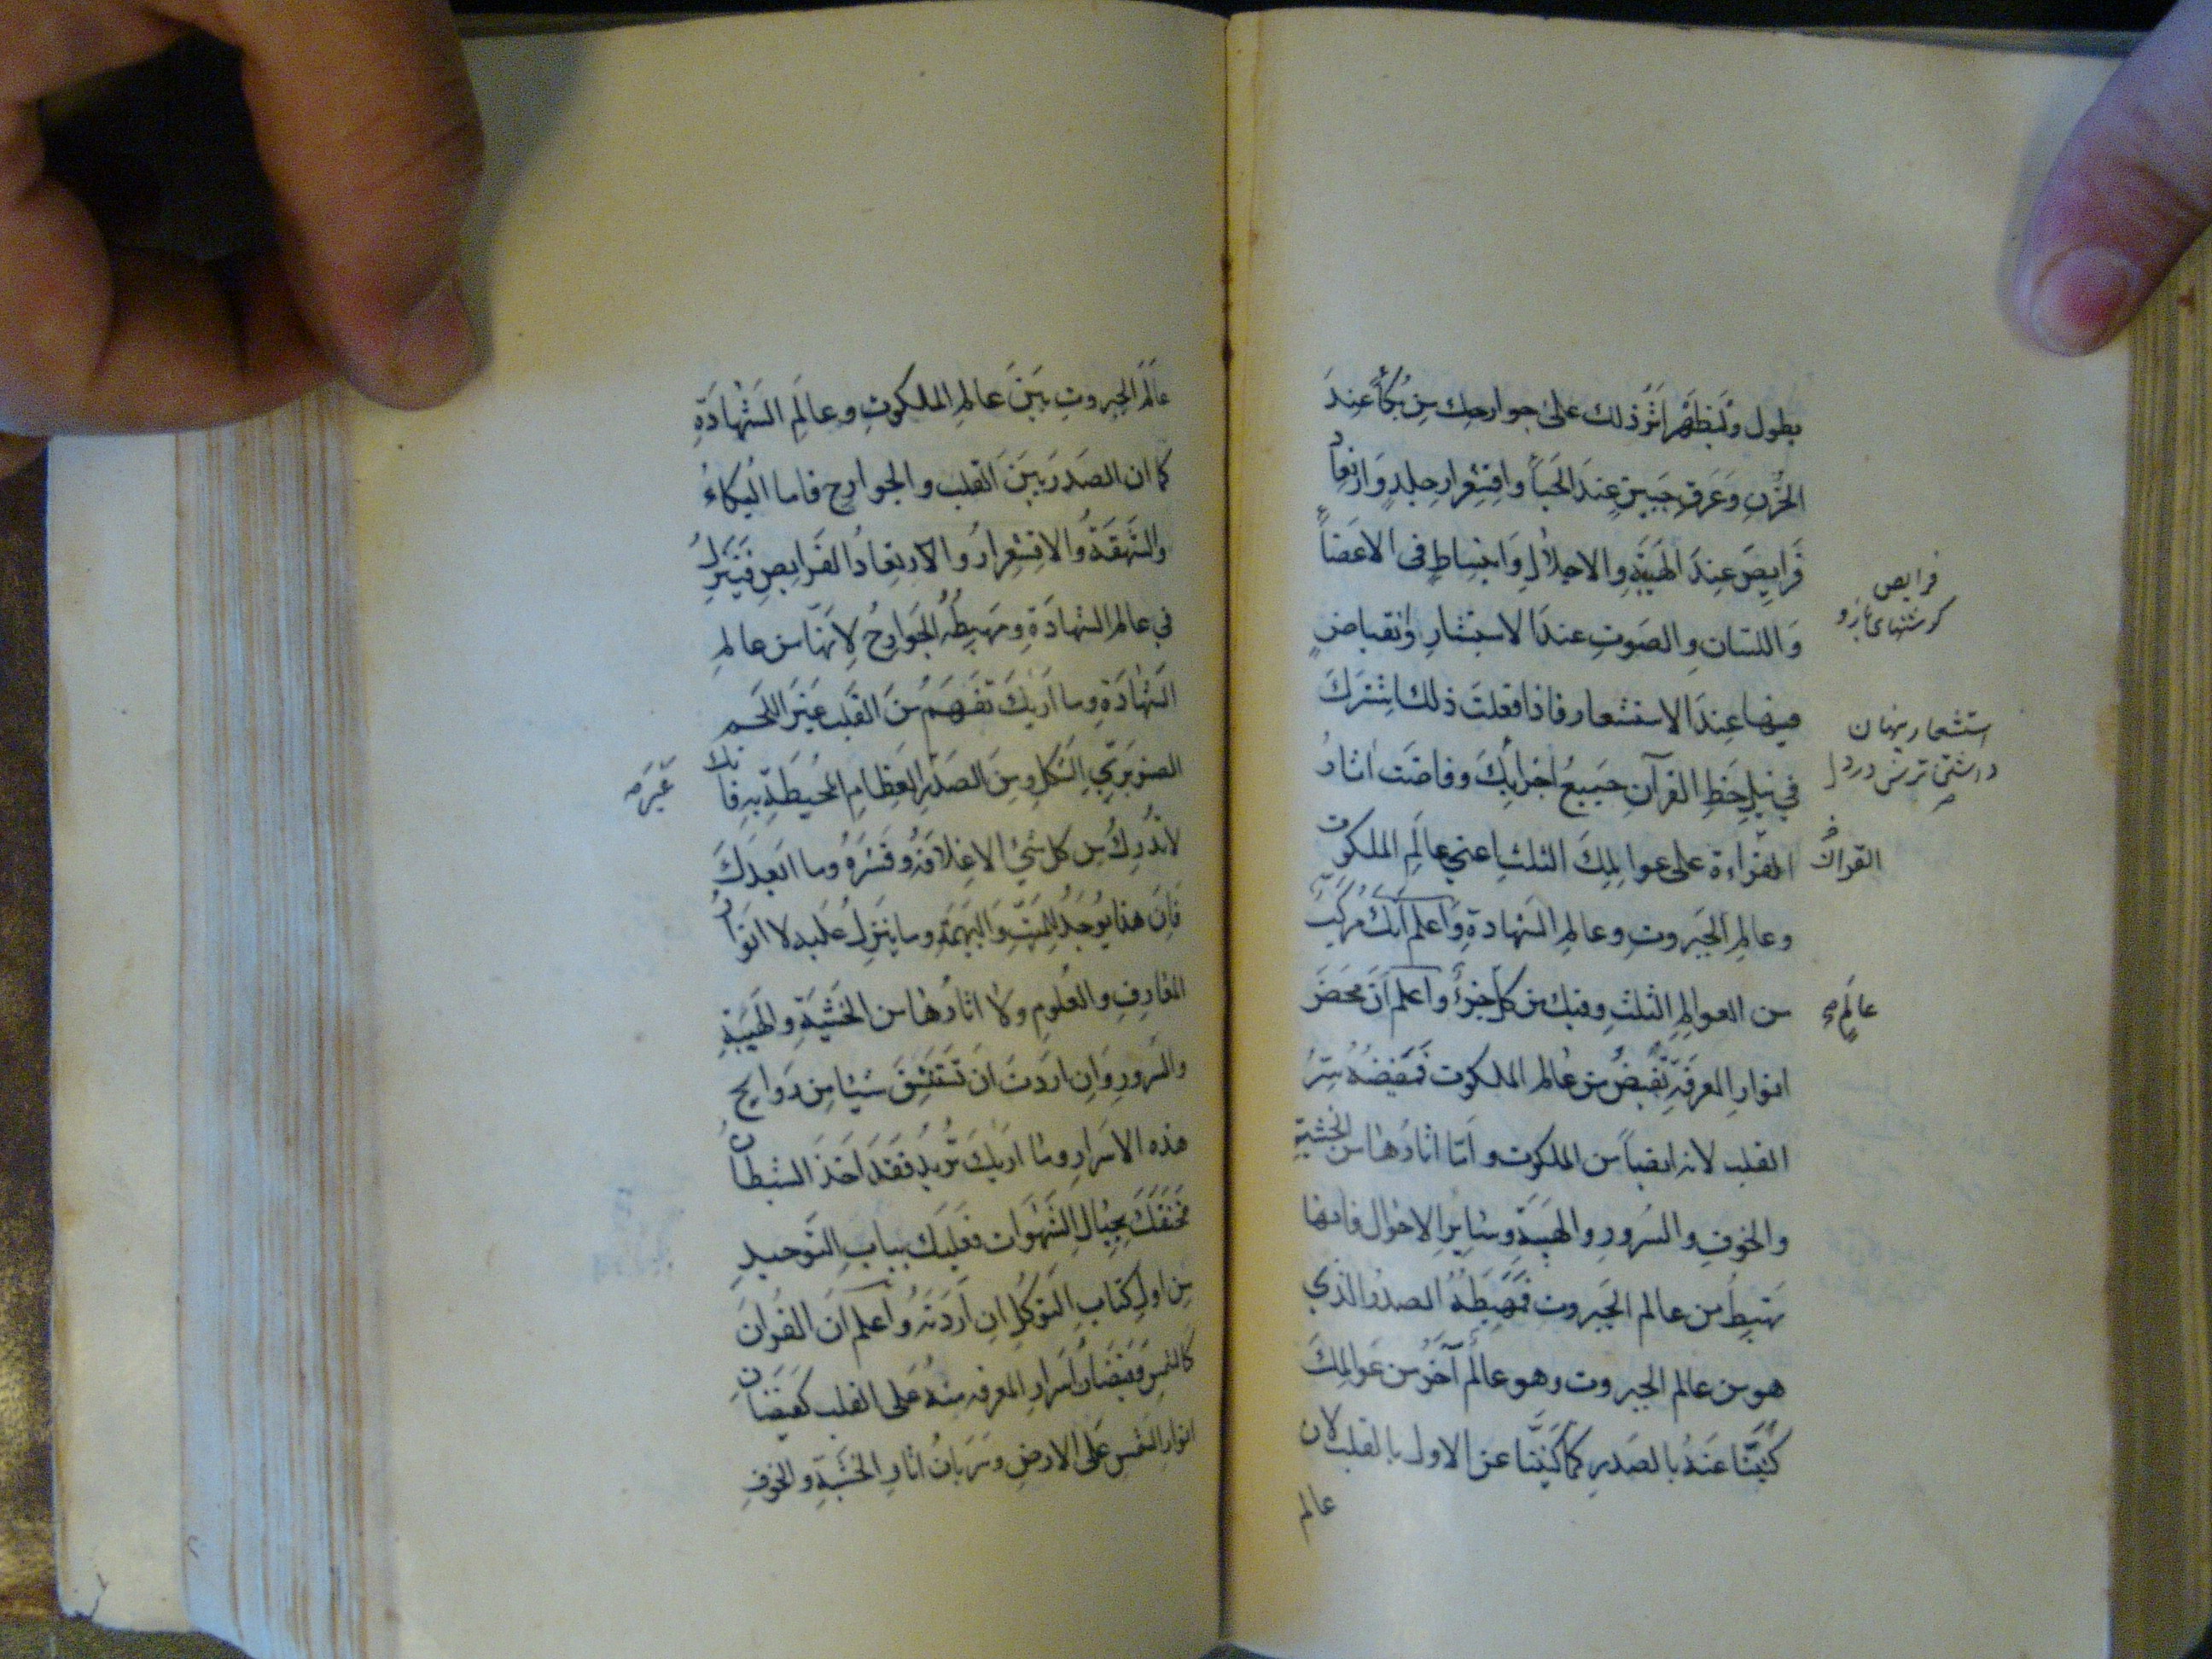 يطول ولنظهر اثر ذلك على جوارحك من بكاء عند
الحزن وعرق جبين عند الحياء واقشعرار جلد وارتعاد
فرايص عند الهيبة والاجلال وانبساط في الاعضاء
واللسان والصوت عند الاستبشار وانقباض
فيها عند الاستشعار فاذا فعلت ذلك اشترك
في نيل حظ القرآن جميع اجزايك وفاضت اثار
القراءة على عوالمك الثلث اعني عالم الملكوت
وعالم الجبروت وعالم الشهادة واعلم انك مركب
من العوالم الثلث وفيك من كل جزء واعلم ان محض
انوار المعرفة تفيض من عالم الملكوت فمفيضه سر
القلب لانه ايضا من الملكوت واما اثارها من الخشية
والخوف والسرور والهيبة وساير الاحوال فانها
تهبط من عالم الجبروت فمهبطه الصدر الذي
هو من عالم الجبروت وهو عالم آخر من عوالمك
كنينا عنه بالصدر كما كنينا عن الاول بالقلب لان
عالم
فرايص
كوشتهاى بازو
استشعار پنهان
داشتن ترس در دل
القرآن
عالم
عالم الجبروت بين عالم الملكوت وعالم الشهادة
كما ان الصدر بين القلب والجوارح فاما البكاء
والشهقة والاقشعرار والارتعاد الفرايص فتنزل
في عالم الشهادة ومهبطه الجوارح لانها من عالم
الشهادة وما اريك تفهم من القلب غير اللحم
الصنوبري الشكل ومن الصدر العظام المحيطة به فانك
لا تدرك من كل شئ الا غلافه وقشره وما ابعدك
فان هذا يوجد للميت والبهيمة وما ينزل عليه لا انوار
المعارف والعلوم ولا اثارها من الخشية والهيبة
والسرور وان اردت ان تستنشق شيئا من روايح
هذه الاسرار وما اريك تريد فقد اخذ الشيطان
مخنقك بحبال الشهوات فعليك بباب التوحيد
من اول كتاب التوكل ان اردته واعلم ان القران
كالشمس وفيضان اسرار المعرفة منه على القلب كفيضان
انوار الشمس على الارض وسريان اثار الخشية والخوف
غيره